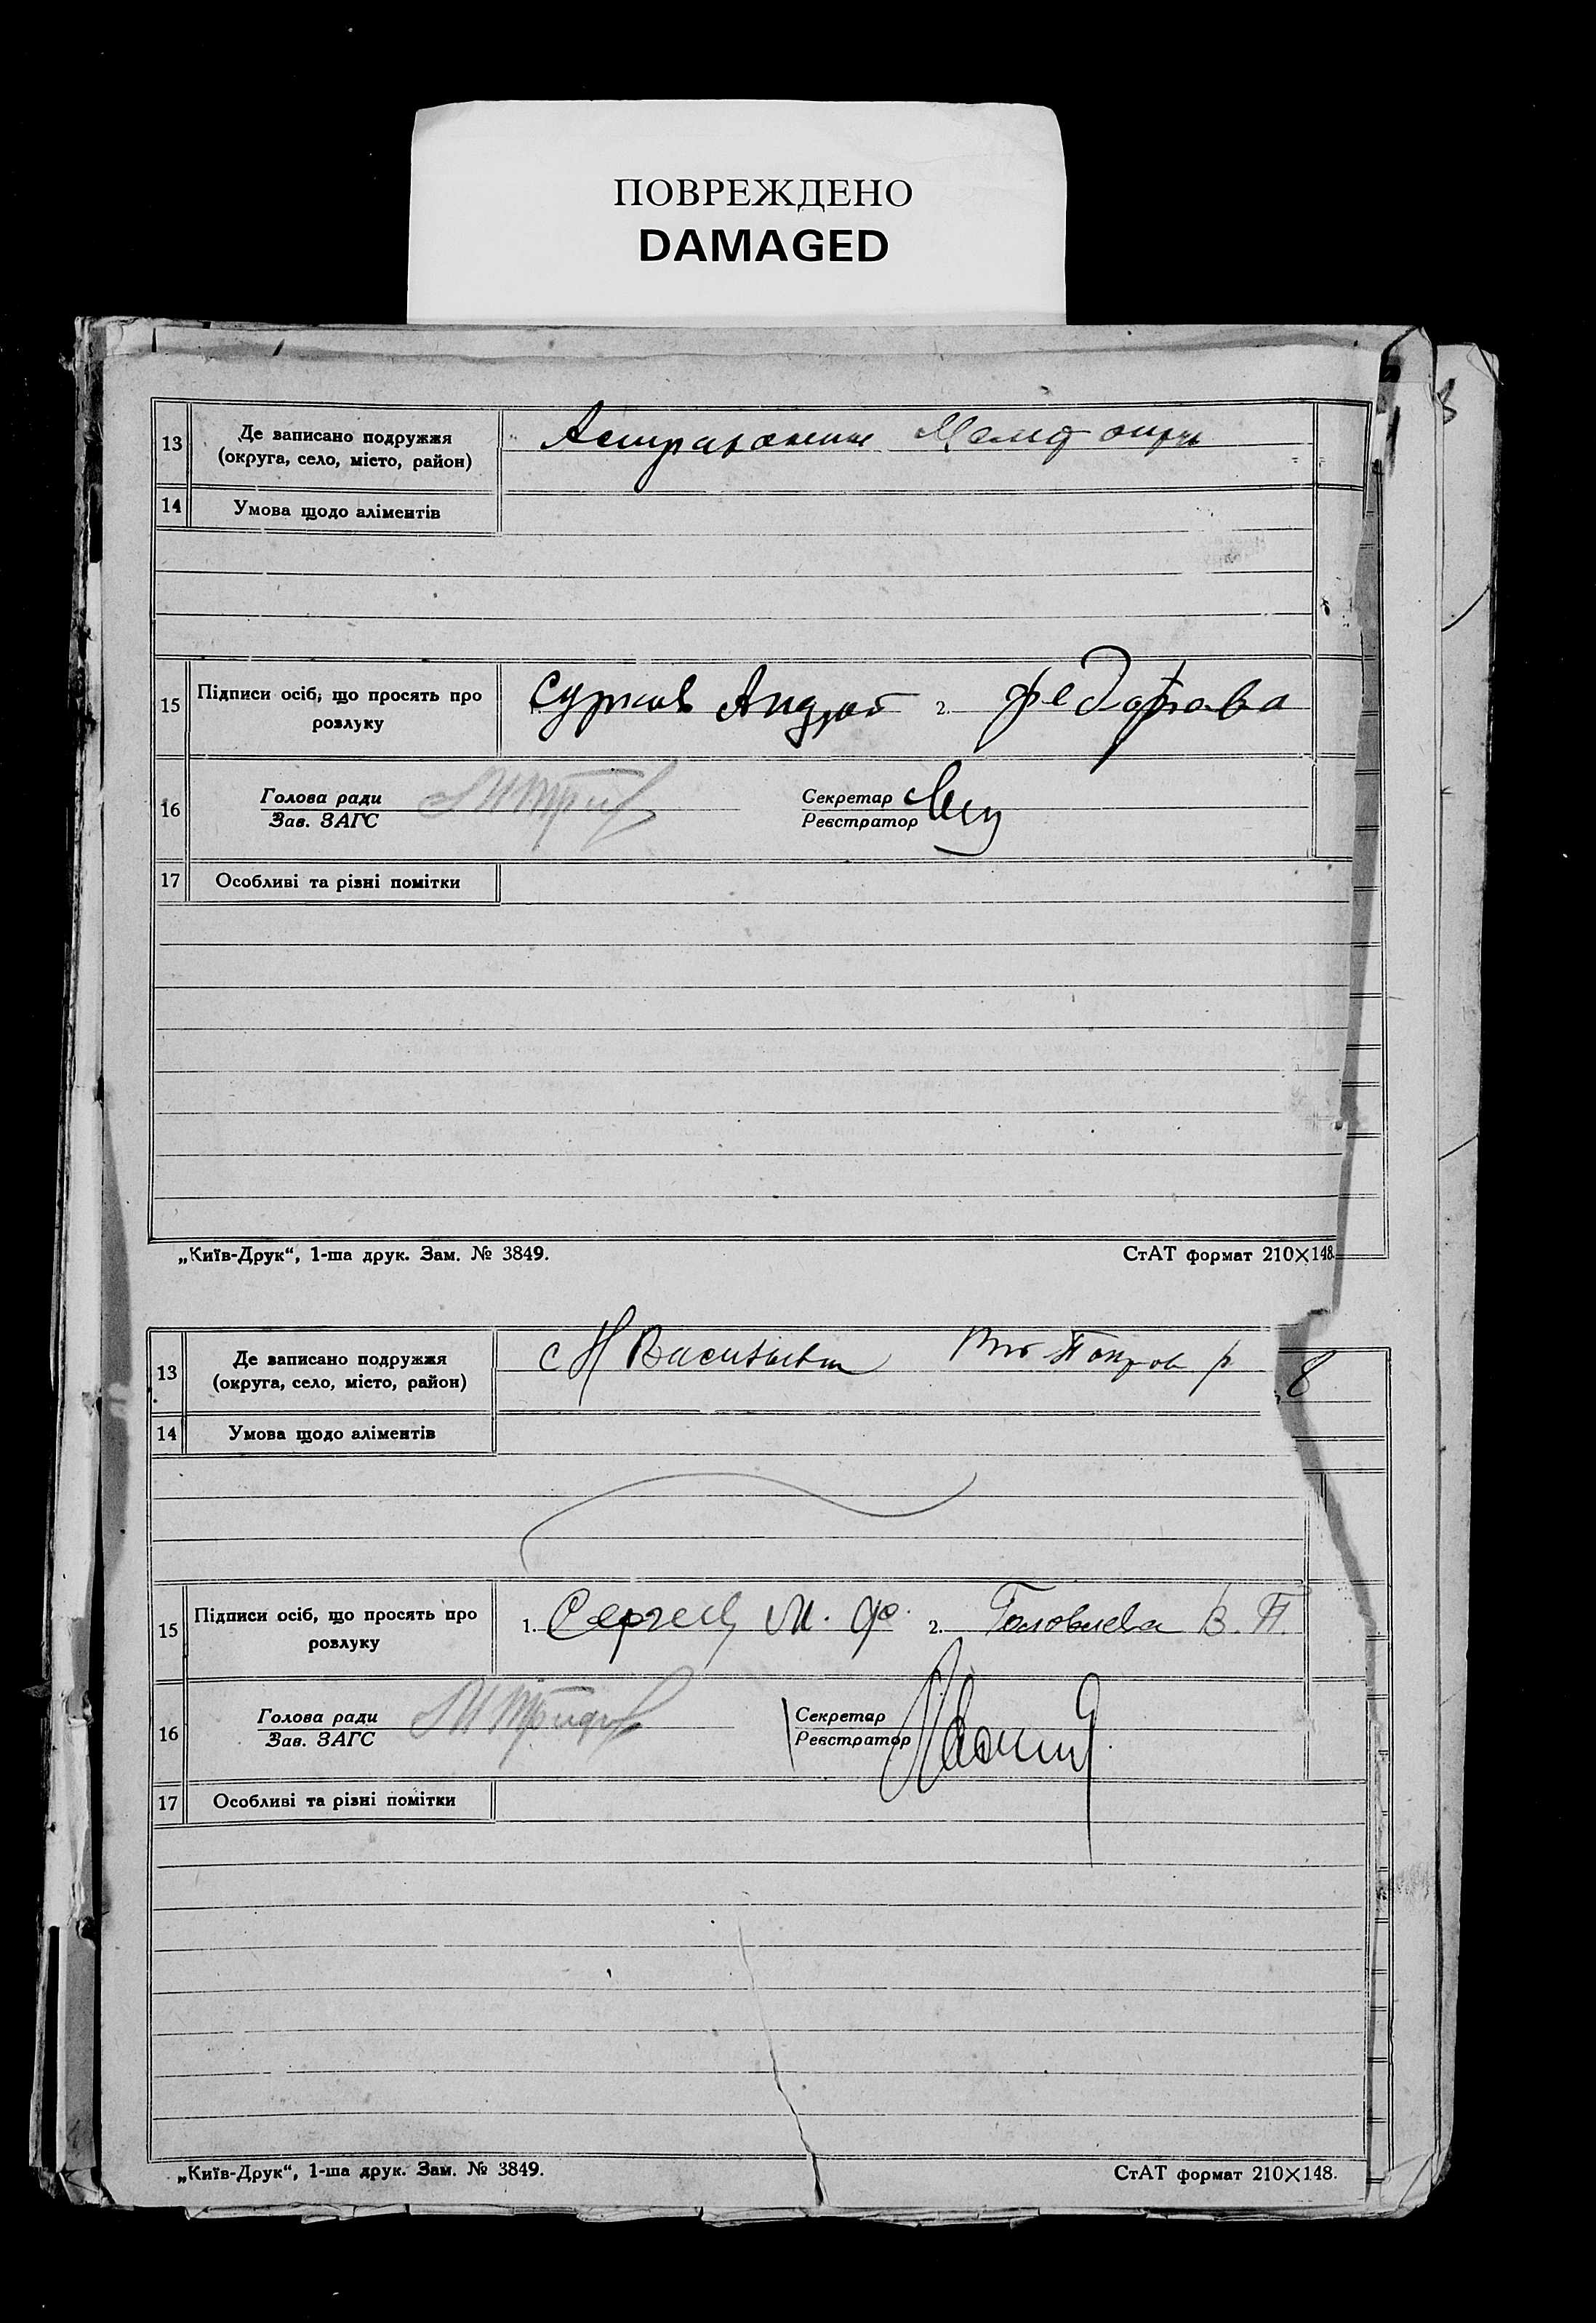 ПОВРЕЖДЕНО
DAMAGED
13 Де записано подружжя
(округа, село, місто, район)
14 Умова щодо аліментів
15 Підписи осіб, що просять про
розлуку
1. Сурков Андрей 2. Федорова
16 Голова ради
Зав. ЗАГС
Секретар
Реєстратор
17 Особливі та різні помітки
„Київ-Друк“, 1-ша друк. Зам. № 3849. СтАТ формат 210×148.
13 Де записано подружжя
(округа, село, місто, район)
с Н Васильевка
8
14 Умова щодо аліментів
15 Підписи осіб, що просять про
розлуку
1. Сергеев М. Ф. 2. Головнева В. П.
16 Голова ради
Зав. ЗАГС
Секретар
Реєстратор
17 Особливі та різні помітки
„Київ-Друк“, 1-ша друк. Зам. № 3849. СтАТ формат 210×148.